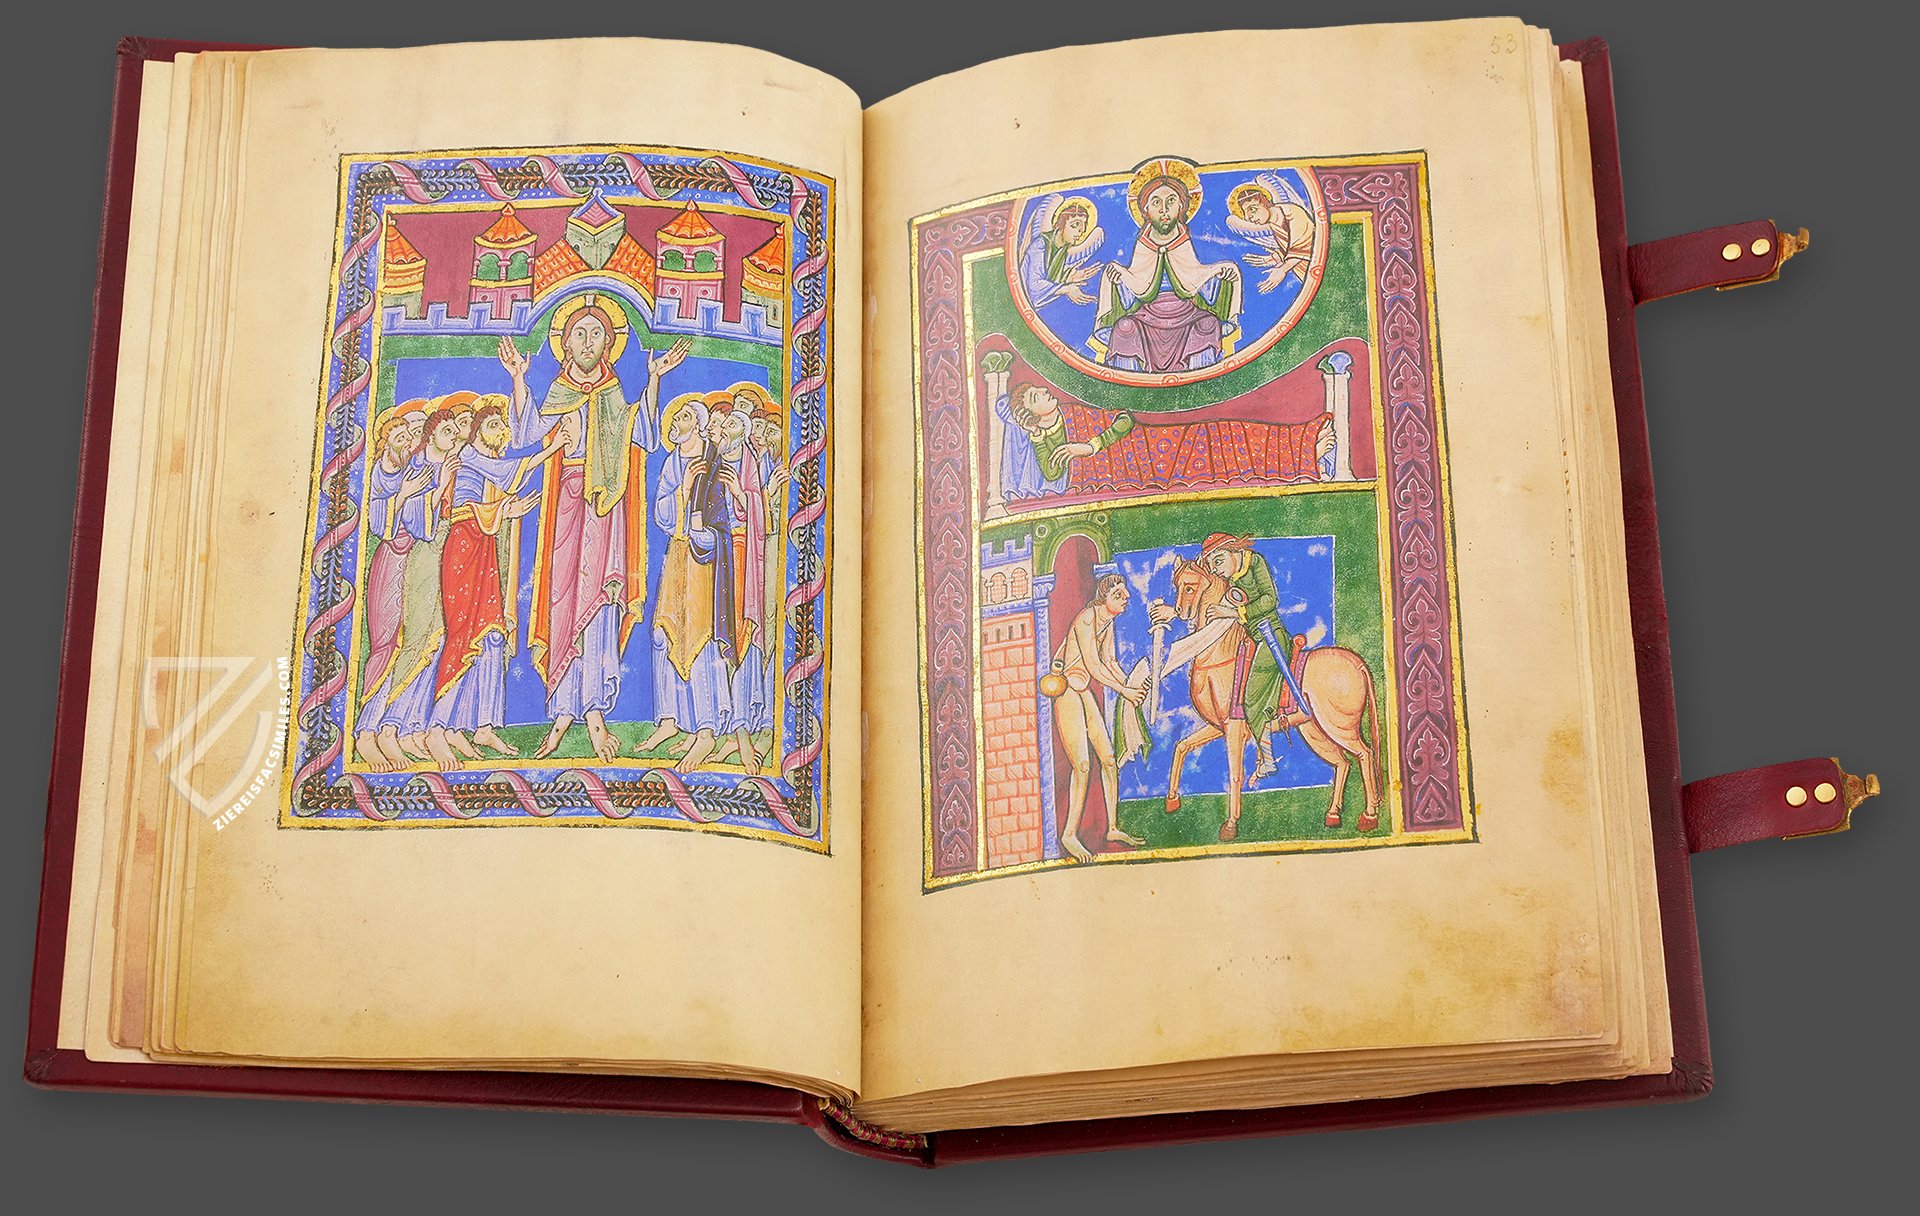 53
ZIEREISFACSIMILES.COM